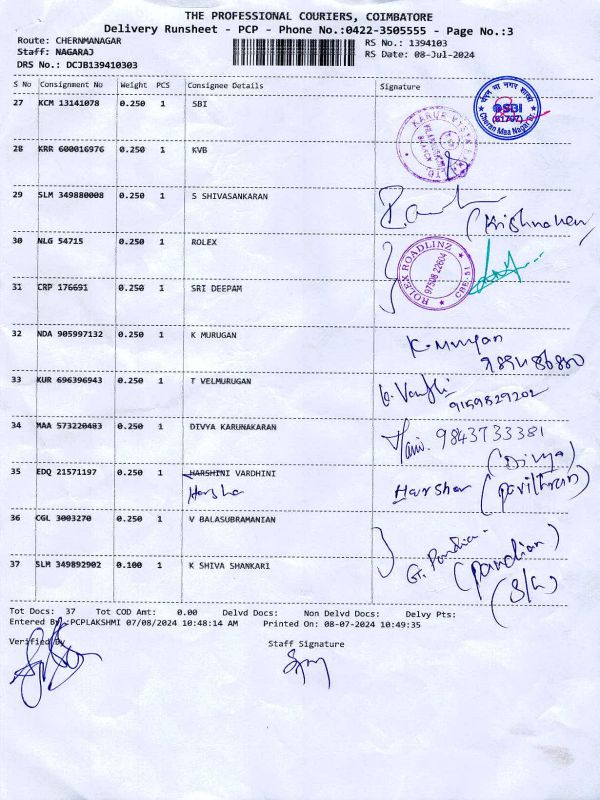 THE PROFESSIONAL COURIERS, COIMBATORE
Delivery Runsheet - PCP - Phone No.:0422-3505555 - Page No.:3
Route: CHERNMANAGAR RS No.: 1394103
Staff: NAGARAJ RS Date: 08-Jul-2024
DRS No.: DCJB139410303
S No Consignment No Weight PCS Consignee Details Signature
27 KCM 13141078 0.250 1 SBI
SBI
(61707)
28 KRR 600016976 0.250 1 KVB
29 SLM 349880008 0.250 1 S SHIVASANKARAN
(Krishnaken
30 NLG 54715 0.250 1 ROLEX
ROLEX ROADLINZ
97508 22604
31 CRP 176691 0.250 1 SRI DEEPAM
32 NDA 905997132 0.250 1 K MURUGAN
K. Murugan
33 KUR 696396943 0.250 1 T VELMURUGAN
9159829202
34 MAA 573220483 0.250 1 DIVYA KARUNAKARAN
9843733381
(Divya)
35 EDQ 21571197 0.250 1 HARSHINI VARDHINI
Harsha Harshar (Pavithran)
36 CGL 3003270 0.250 1 V BALASUBRAMANIAN
G. Pandian (Pandian)
37 SLM 349892902 0.100 1 K SHIVA SHANKARI
Tot Docs: 37 Tot COD Amt: 0.00 Delvd Docs: Non Delvd Docs: Delvy Pts:
Entered By :PCPLAKSHMI 07/08/2024 10:48:14 AM Printed On: 08-07-2024 10:49:35
Verified By Staff Signature